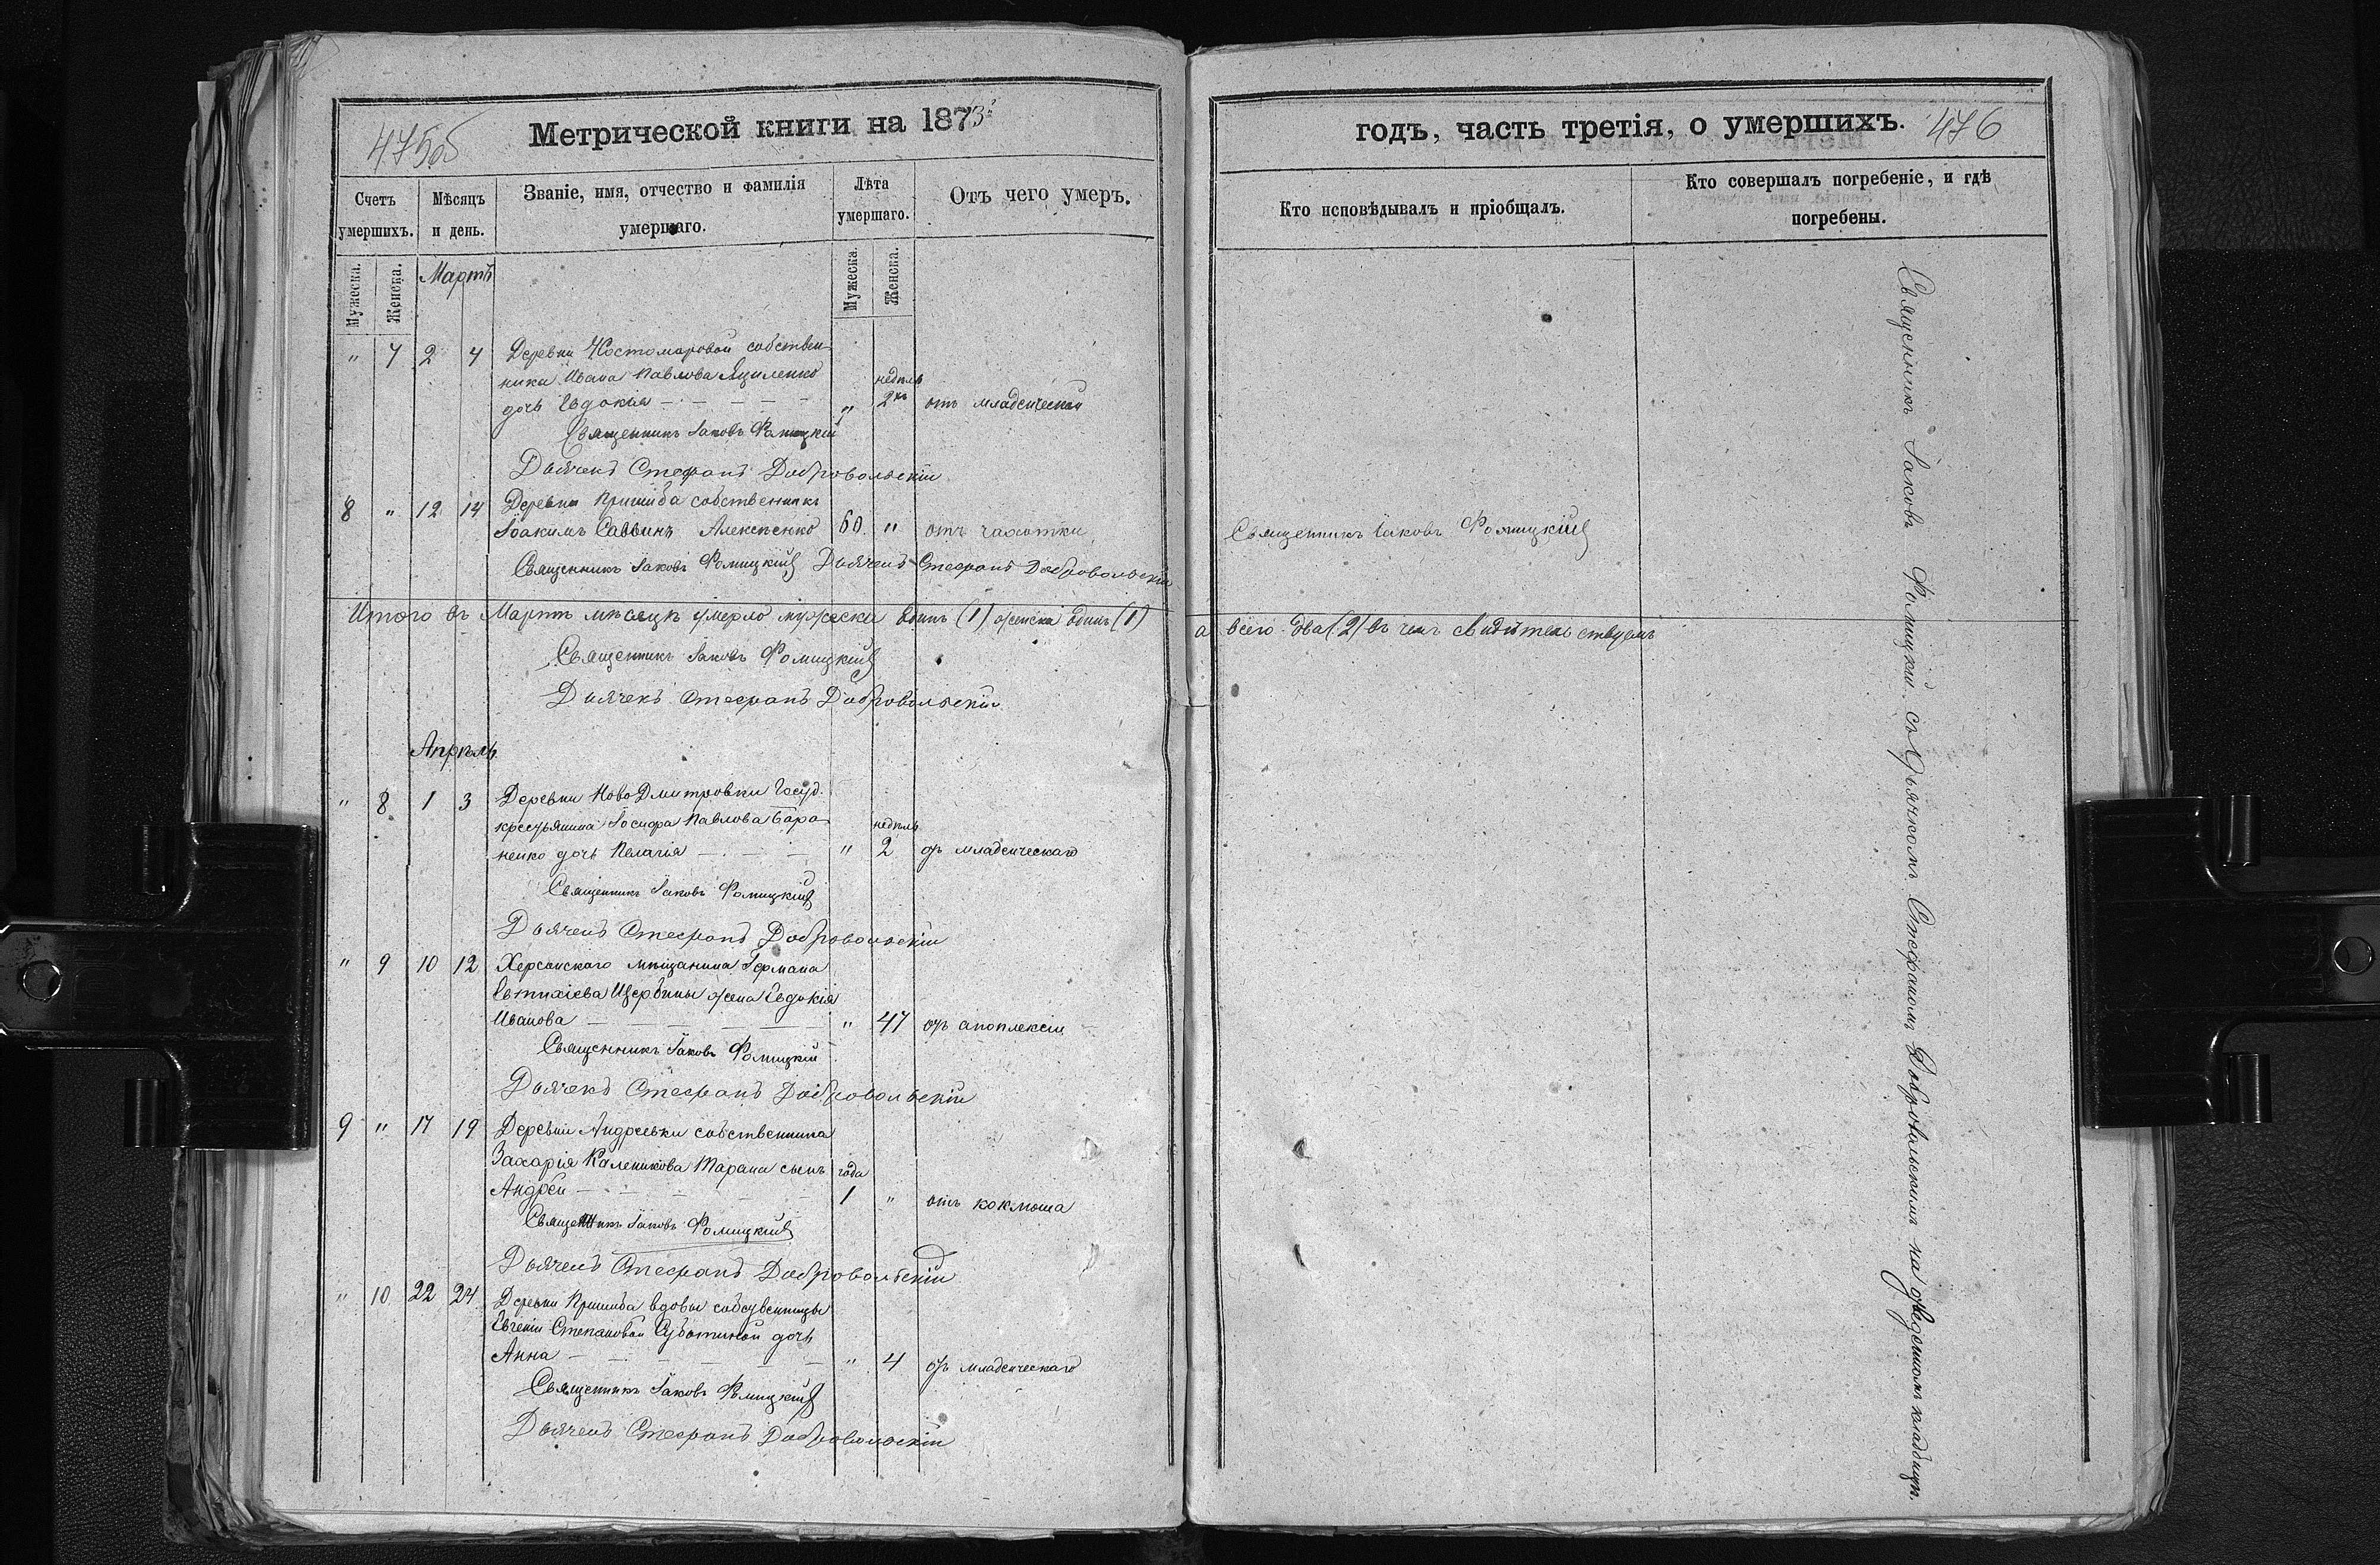 475об
Метрической книги на 1873й
Счетъ умершихъ.
Мѣсяцъ и день.
Званіе, имя, отчество и фамилія умершаго.
Лѣта умершаго.
Отъ чего умеръ.
Мужеска.
Женска.
Мартъ
Мужеска.
Женска.
" 7 2 4 Деревни Костомаровой собствен
ника Ивана Павлова Яциленко недѣль
дочь Евдокія — — — — " 2хъ отъ младенческой
Священникъ Іаковъ Фомицкій
Дьячекъ Стефанъ Добровольскій
8 " 12 14 Деревни Пришиба собственникъ
Іоакимъ Саввинъ Алексѣенко 60 " отъ чахотки
Священникъ Іаковъ Фомицкій Дьячекъ Стефанъ Добровольскій
Итого въ Мартѣ мѣсяцѣ умерло мужеска одинъ (1) женска одинъ (1)
Священникъ Іаковъ Фомицкій
Дьячекъ Стефанъ Добровольскій
Апрѣль
" 8 1 3 Деревни НовоДмитровки Госуд.
крестьянина Іосифа Павлова Бара недѣль
ненко дочь Пелагія — — — " 2 отъ младенческаго
Священникъ Іаковъ Фомицкій
Дьячекъ Стефанъ Добровольскій
" 9 10 12 Херсонскаго мѣщанина Германа
Евтихіева Щербины жена Евдокія
Иванова — — — — " 47 отъ апоплексіи
Священникъ Іаковъ Фомицкій
Дьячекъ Стефанъ Добровольскій
9 " 17 19 Деревни Андреевки собственника
Захарія Каленикова Тарана сынъ года
Андрей — — — — 1 " отъ коклюша
Священникъ Іаковъ Фомицкій
Дьячекъ Стефанъ Добровольскій
" 10 22 24 Деревни Пришиба вдовы собственницы
Евгеніи Степановой Суботиной дочь
Анна — — — — " 4 отъ младенческаго
Священникъ Іаковъ Фомицкій
Дьячекъ Стефанъ Добровольскій
годъ, часть третія, о умершихъ.
476
Кто исповѣдывалъ и пріобщалъ.
Кто совершалъ погребеніе, и гдѣ
погребены.
Священникъ Іаковъ Фомицкій
а всего два (2) въ чемъ свидѣтельствуемъ
Священникъ Іаковъ Фомицкій съ дьячкомъ Стефаномъ Добровольскимъ на отведенномъ кладбищѣ.